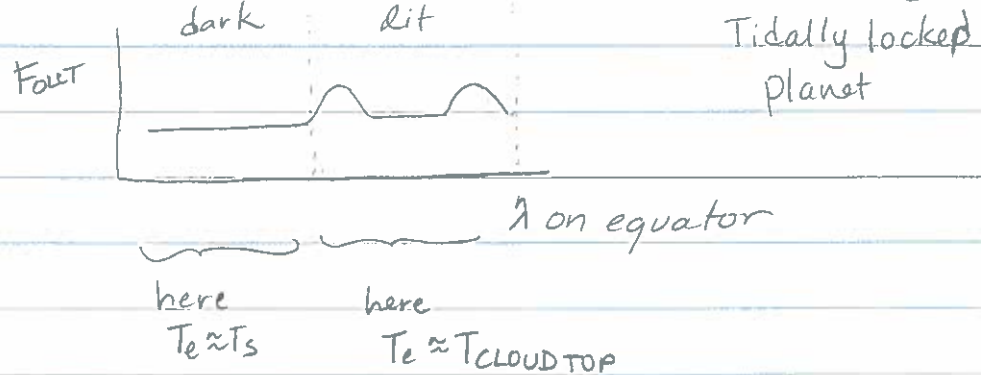 dark lit
Tidally locked
planet
FOUT
λ on equator
here here
Te ≈ Ts Te ≈ TCLOUDTOP